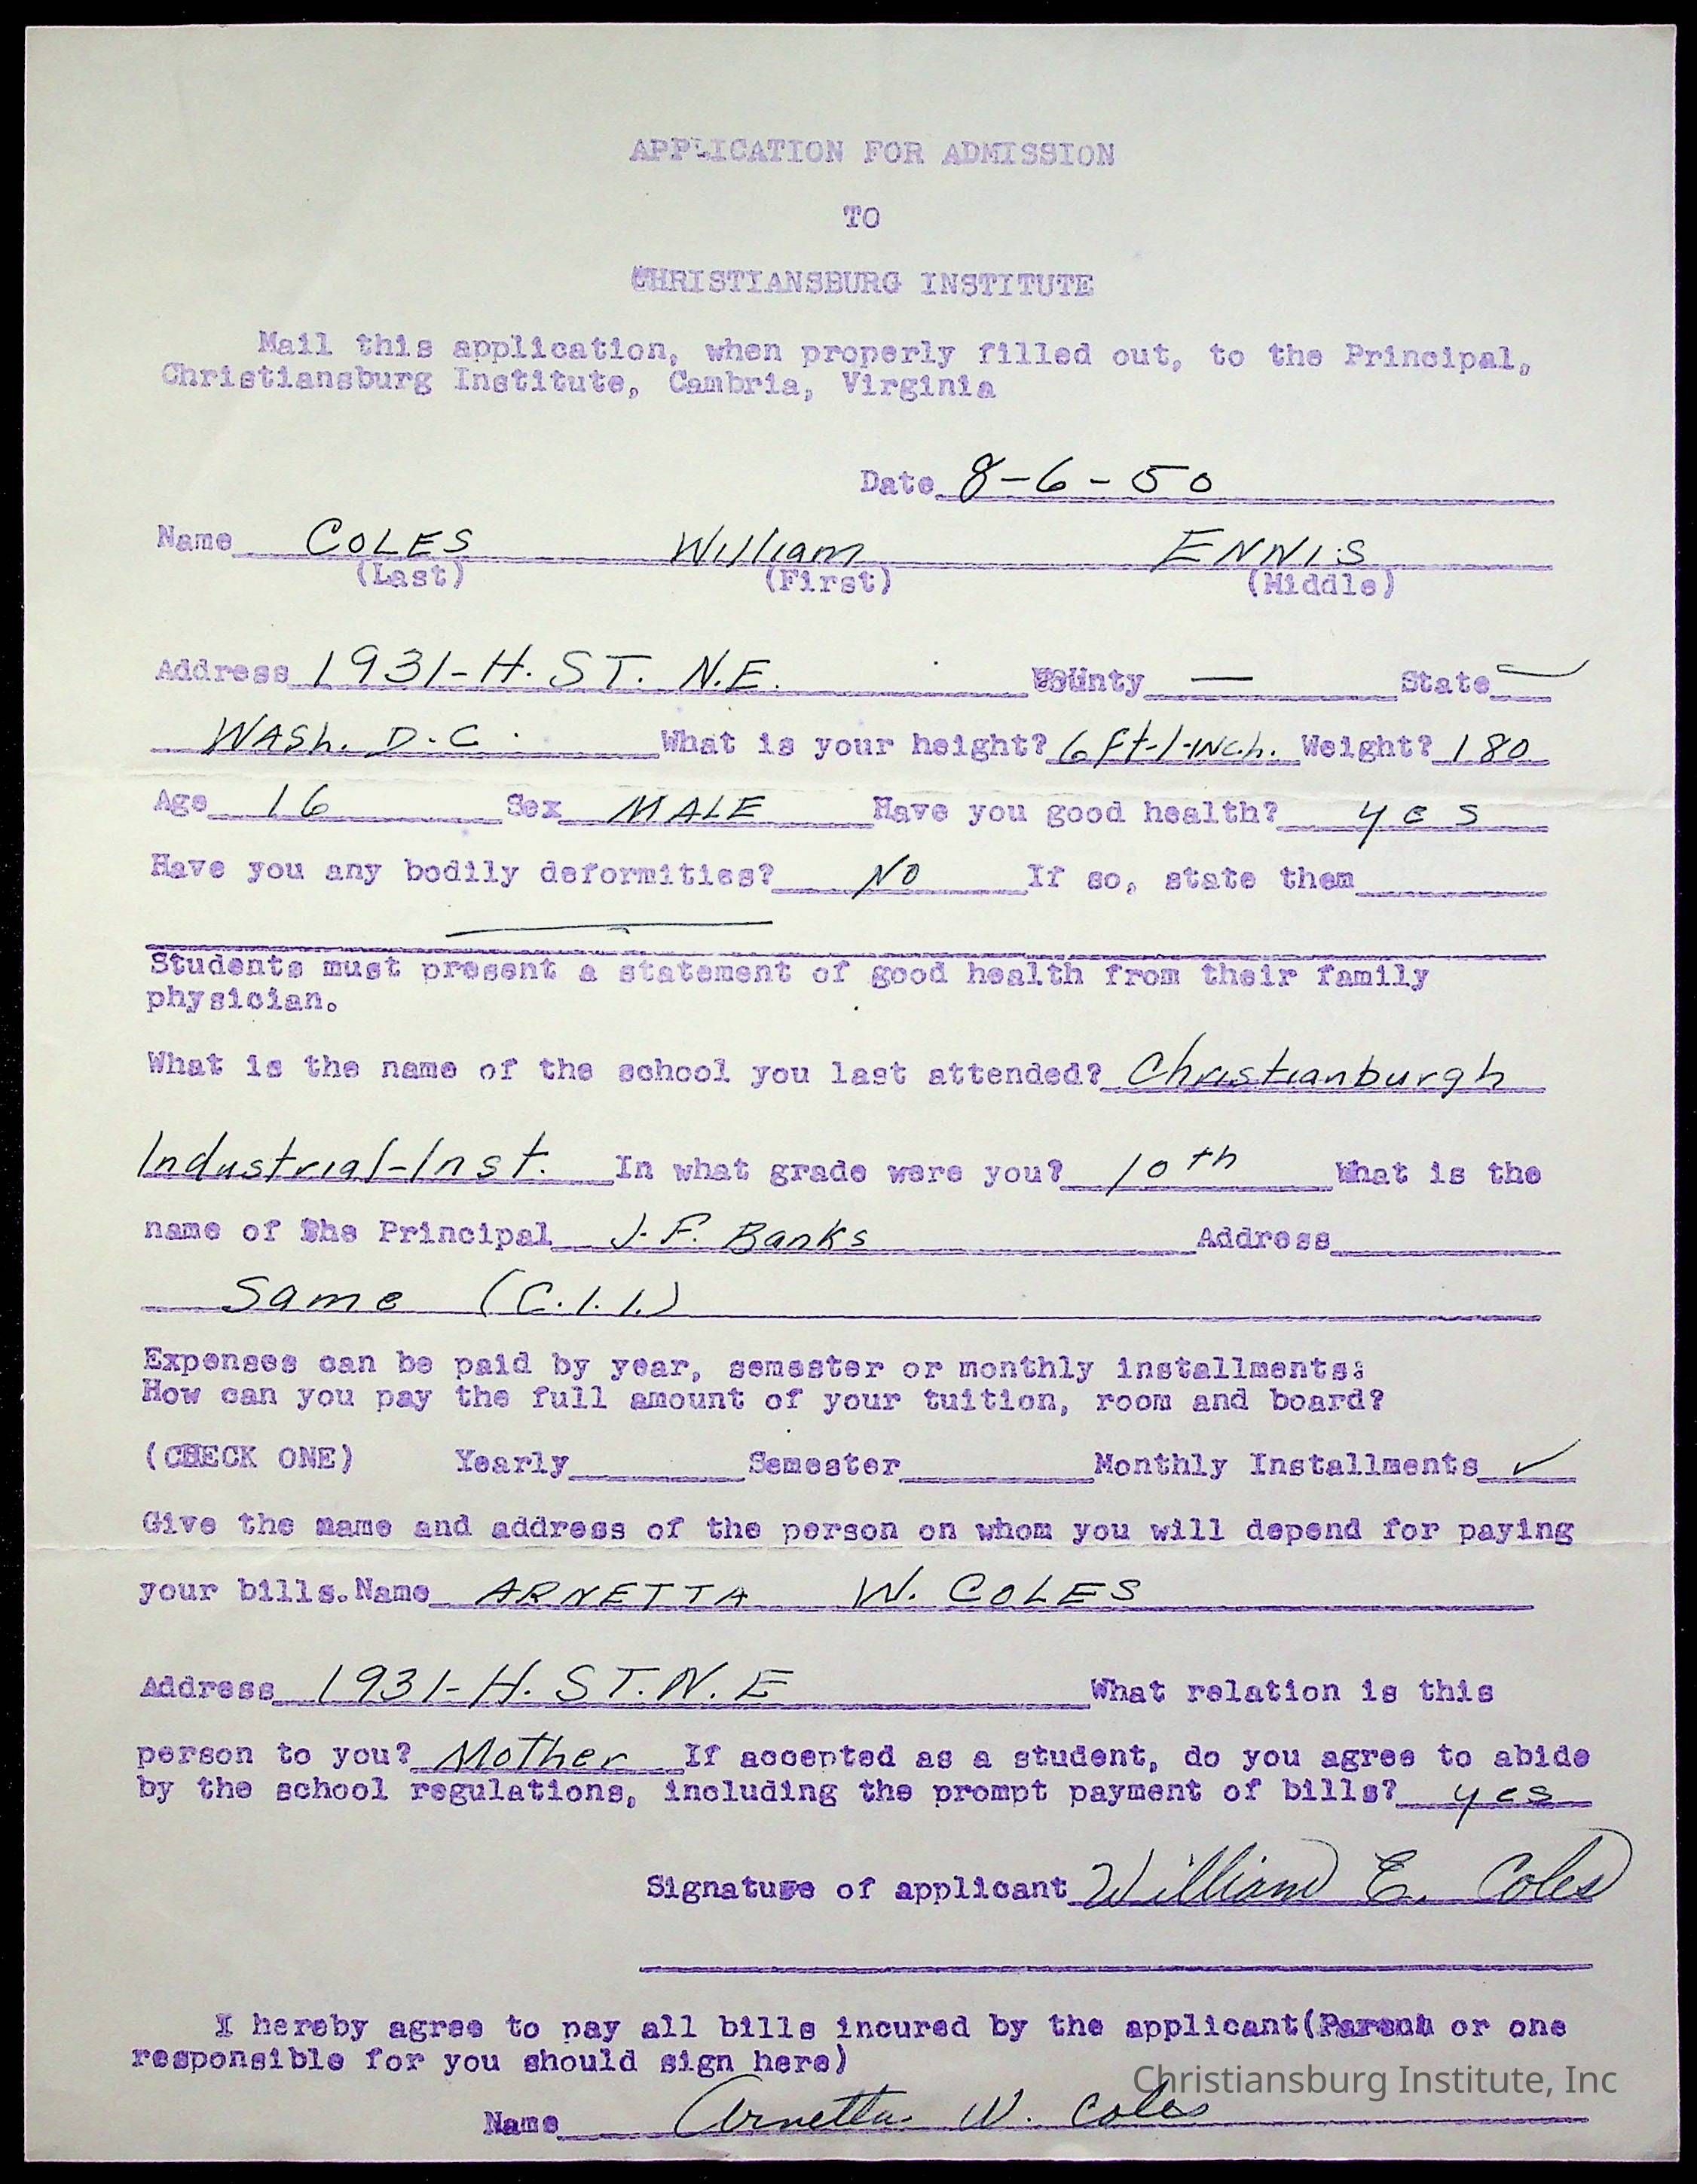 APPLICATION FOR ADMISSION
TO
CHRISTIANSBURG INSTITUTE
Mail this application, when properly filled out, to the Principal,
Christiansburg Institute, Cambria, Virginia
Date 8-6-50
Name COLES William ENNIS
(Last) (First) (Middle)
Address 1931-H. ST. N.E. County — State —
WASh. D.C. What is your height? 6ft-1-INch. Weight? 180
Age 16 Sex MALE Have you good health? yes
Have you any bodily deformities? NO If so, state them
Students must present a statement of good health from their family
physician.
What is the name of the school you last attended? Christianburgh
Industrial-Inst. In what grade were you? 10th What is the
name of the Principal J.F. Banks Address
Same (C.I.I.)
Expenses can be paid by year, semester or monthly installments:
How can you pay the full amount of your tuition, room and board?
(CHECK ONE) Yearly Semester Monthly Installments ✓
Give the name and address of the person on whom you will depend for paying
your bills. Name ARNETTA W. COLES
Address 1931-H. ST. N.E What relation is this
person to you? Mother If accepted as a student, do you agree to abide
by the school regulations, including the prompt payment of bills? yes
Signature of applicant William E. Coles
I hereby agree to pay all bills incured by the applicant(Parent or one
responsible for you should sign here)
Christiansburg Institute, Inc
Name Arnetta W. Coles